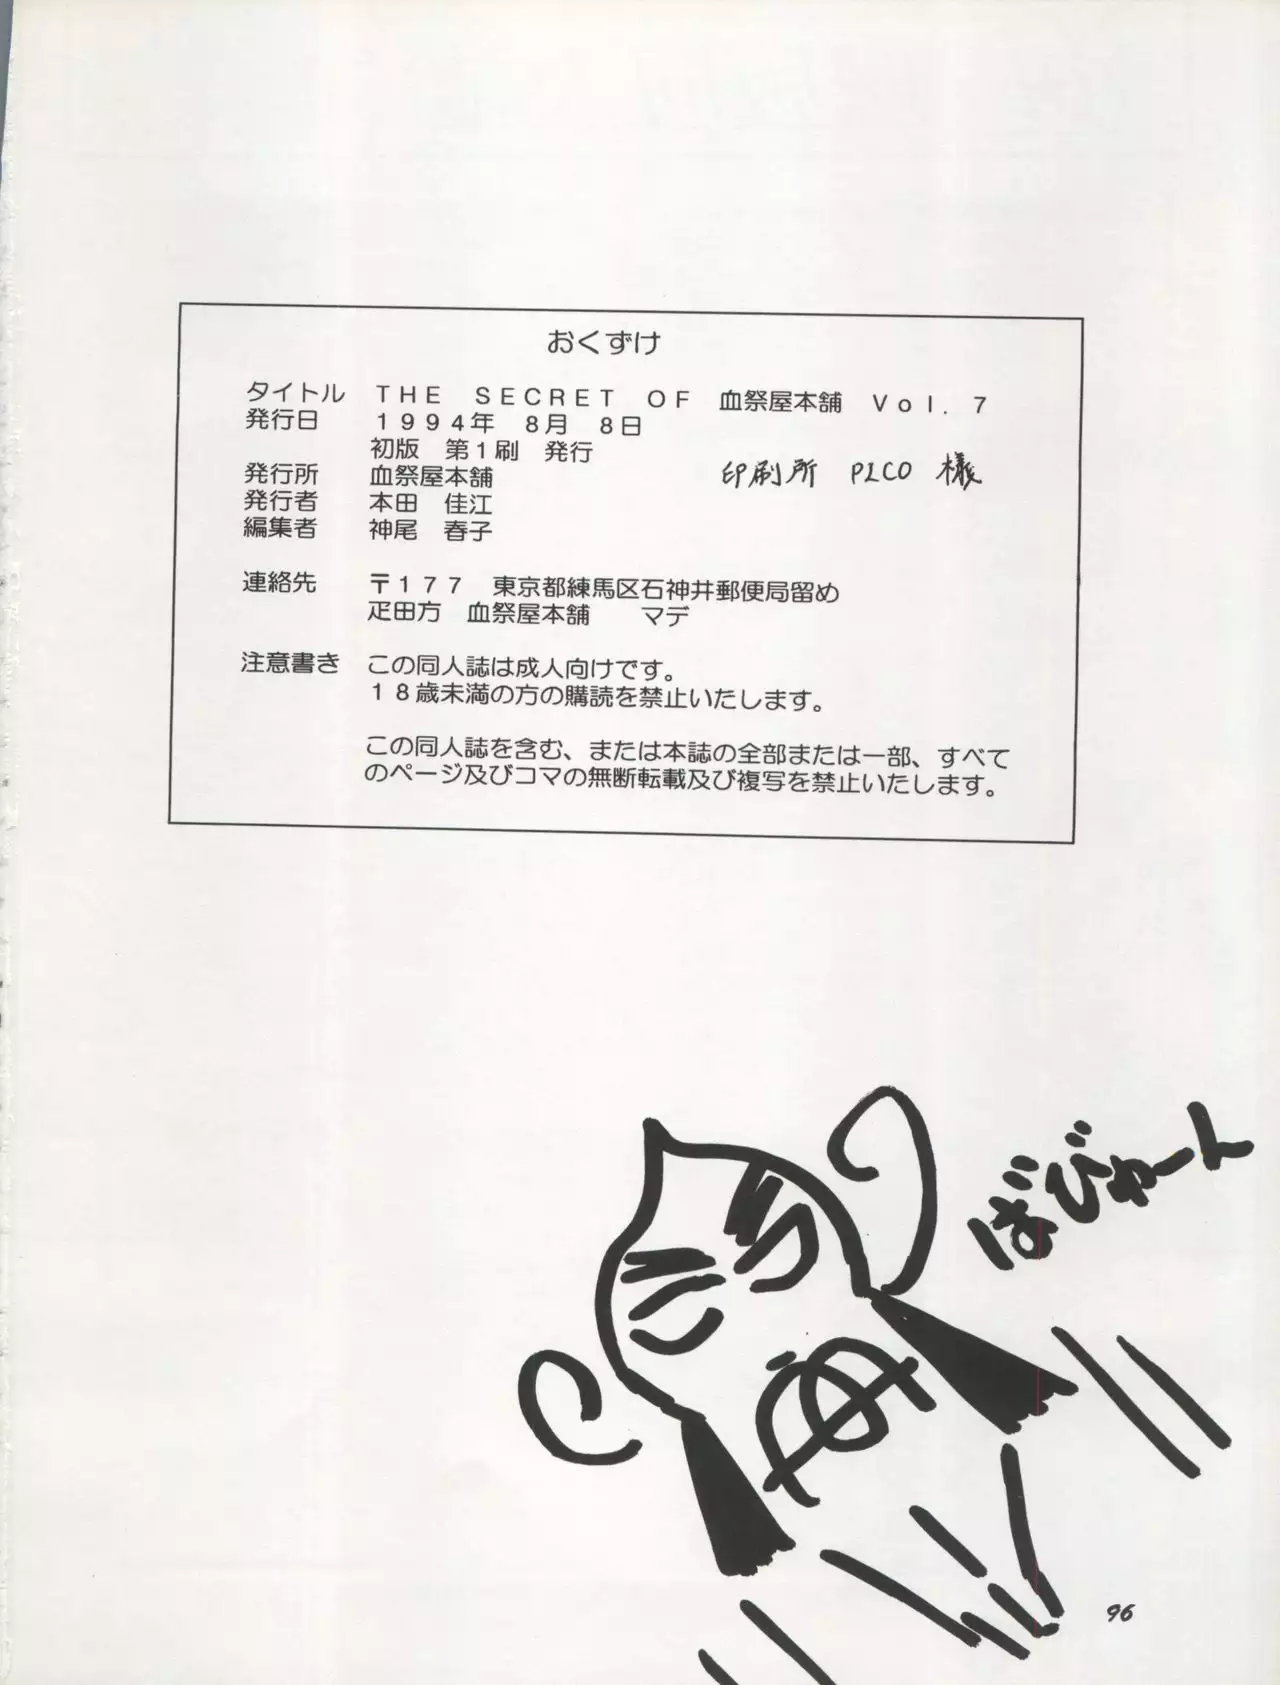 おくずけ
タイトル　ＴＨＥ　ＳＥＣＲＥＴ　ＯＦ　血祭屋本舗　Ｖｏｌ．７
発行日　１９９４年　８月　８日
初版　第１刷　発行
発行所　血祭屋本舗
印刷所　PICO　様
発行者　本田　佳江
編集者　神尾　春子
連絡先　〒１７７　東京都練馬区石神井郵便局留め
疋田方　血祭屋本舗　マデ
注意書き　この同人誌は成人向けです。
１８歳未満の方の購読を禁止いたします。
この同人誌を含む、または本誌の全部または一部、すべて
のページ及びコマの無断転載及び複写を禁止いたします。
ばびゅーん
96